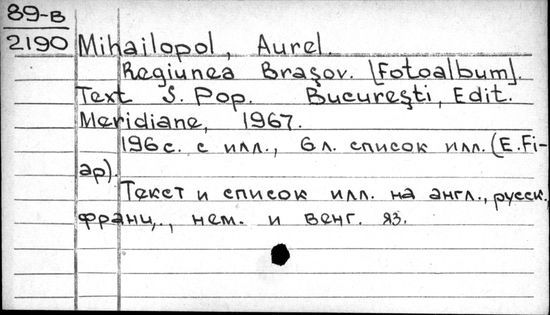 89-В
2190 Mihailopol, Aurel.
Regiunea Braşov. [Fotoalbum].
Text S. Pop. Bucureşti, Edit.
Meridiane, 1967.
196 с. с илл., 6 л. список илл. (E. Fi-
ap).
Текст и список илл. на англ., русск.,
франц., нем. и венг. яз.